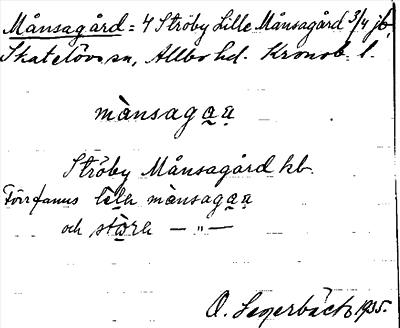 Månsagård = 4 Ströby Lille Månsagård 3/4 jb,
Skatelövs sn, Allbo hd. Kronob. l.
mànsagaa
Ströby Månsagård kb.
Förr fanns lela mànsagaa
och stòra — „ —
O. Lagerbäck 1935.